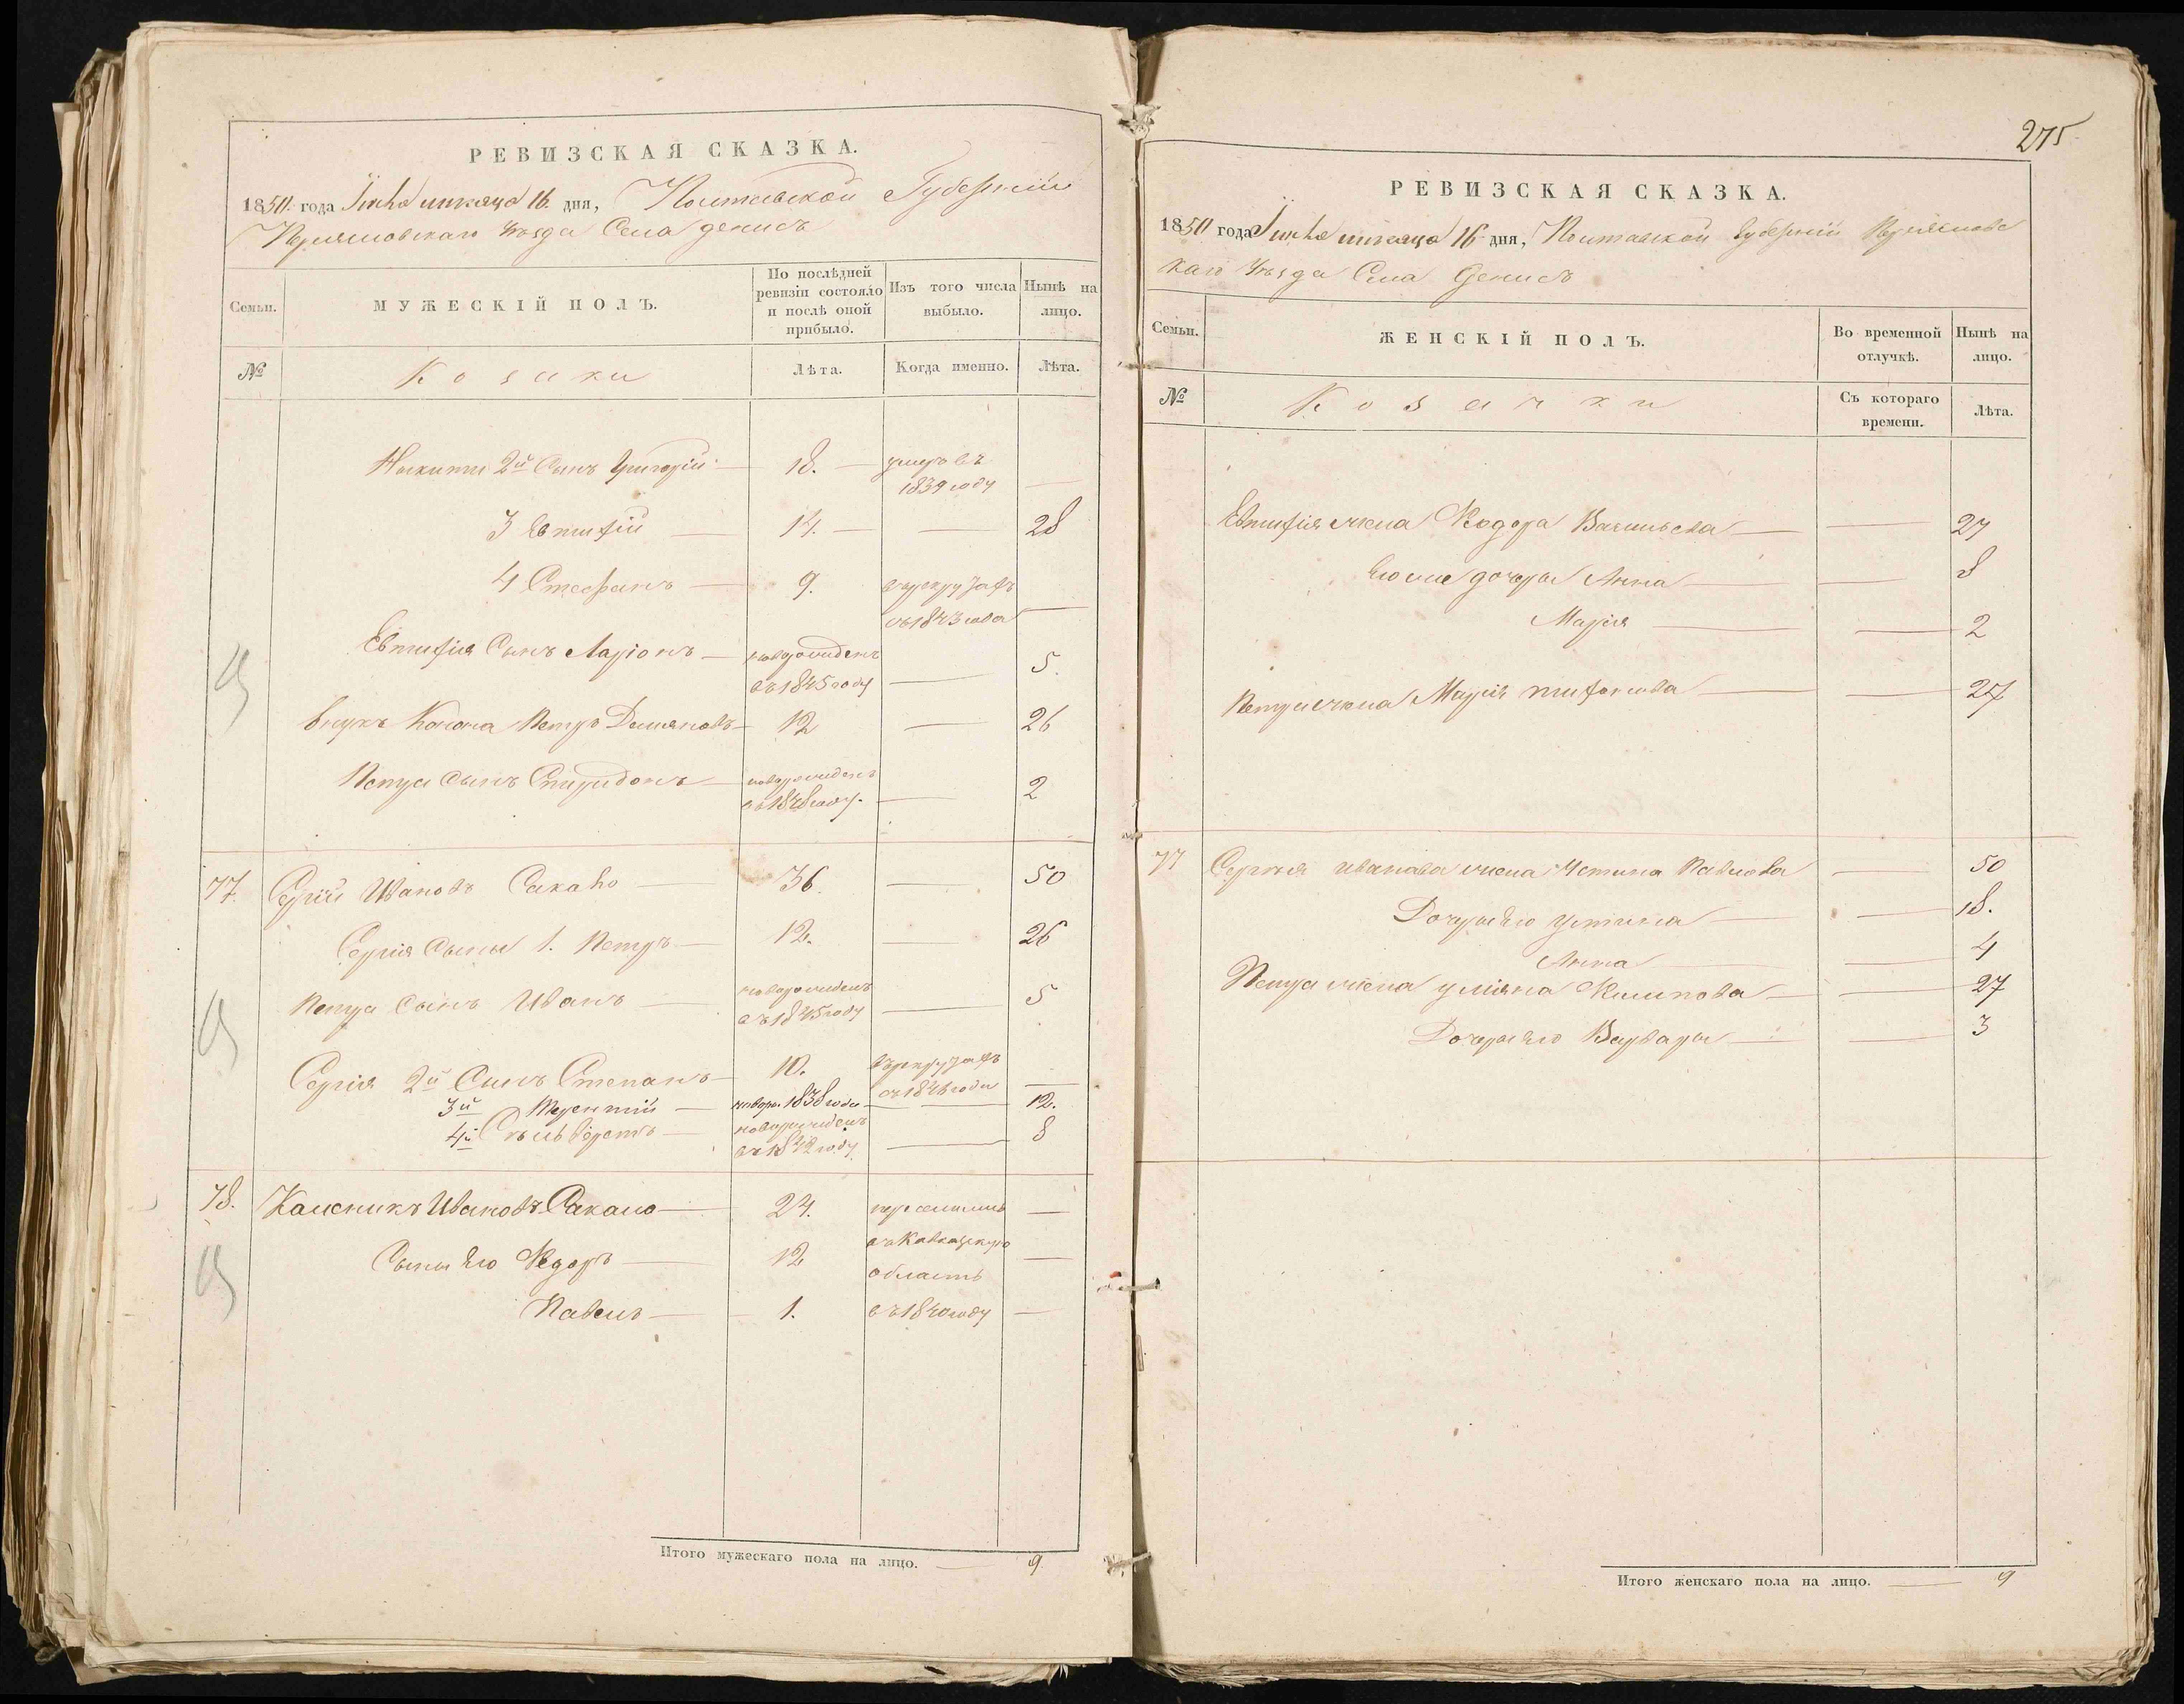 РЕВИЗСКАЯ СКАЗКА.
1850. года Июня месяца 16. дня, Полтавской Губернии
Переясловскаго Уезда Села денисъ
Семьи.
МУЖЕСКІЙ ПОЛЪ.
По послѣдней ревизіи состояло и послѣ оной прибыло.
Изъ того числа выбыло.
Нынѣ на лицо.
№
Козаки
Лѣта.
Когда именно.
Лѣта.
Никиты 2й Сынъ Григорій 18. умеръ въ
1839 году
3 Евтифій 14. 28
4 Стефанъ 9. в рекрутахъ
съ 1843 года
Евтифія Сынъ Ларіонъ новорожденъ
въ 1845 году 5.
внукъ Конона Петръ Демяновъ 12 26
Петра Сынъ Спиридонъ новорожденъ
въ 1848 году. 2
77. Сергій Ивановъ Сакало 36. 50
Сергія Сыны 1. Петръ 12. 26
Петра Сынъ Иванъ новорожденъ
въ 1845 году 5
Сергія 2й Сынъ Степанъ 10. въ рекрутахъ
съ 1846 года
3й Терентій новор. 1838 года 12.
4й Сильверстъ новорожденъ
въ 1842 году. 8
78. Каленикъ Ивановъ Сакало 24. переселились
въ Кавказскую
Сыны его Федоръ 12
область
Павелъ 1. въ 1840 году
Итого мужескаго пола на лицо. 9.
275
РЕВИЗСКАЯ СКАЗКА.
1850 года Июня месяца 16 дня, Полтавской Губерніи Переясловс
каго Уезда Села Денисъ
Семьи.
ЖЕНСКІЙ ПОЛЪ.
Во временной отлучкѣ.
Нынѣ на лицо.
№
Козачки
Съ котораго времени.
Лѣта.
Евтифія жена Феодора Васильева 27
Его же дочери Анна 8
Марія 2
Петра жена Марія тифонова 27
77 Сергея иванова жена Устина Павлова 50
Дочери Его устина 18.
Анна 4
Петра жена уліяна Климова 27
Дочери Его Варвара 3
Итого женскаго пола на лицо. 9